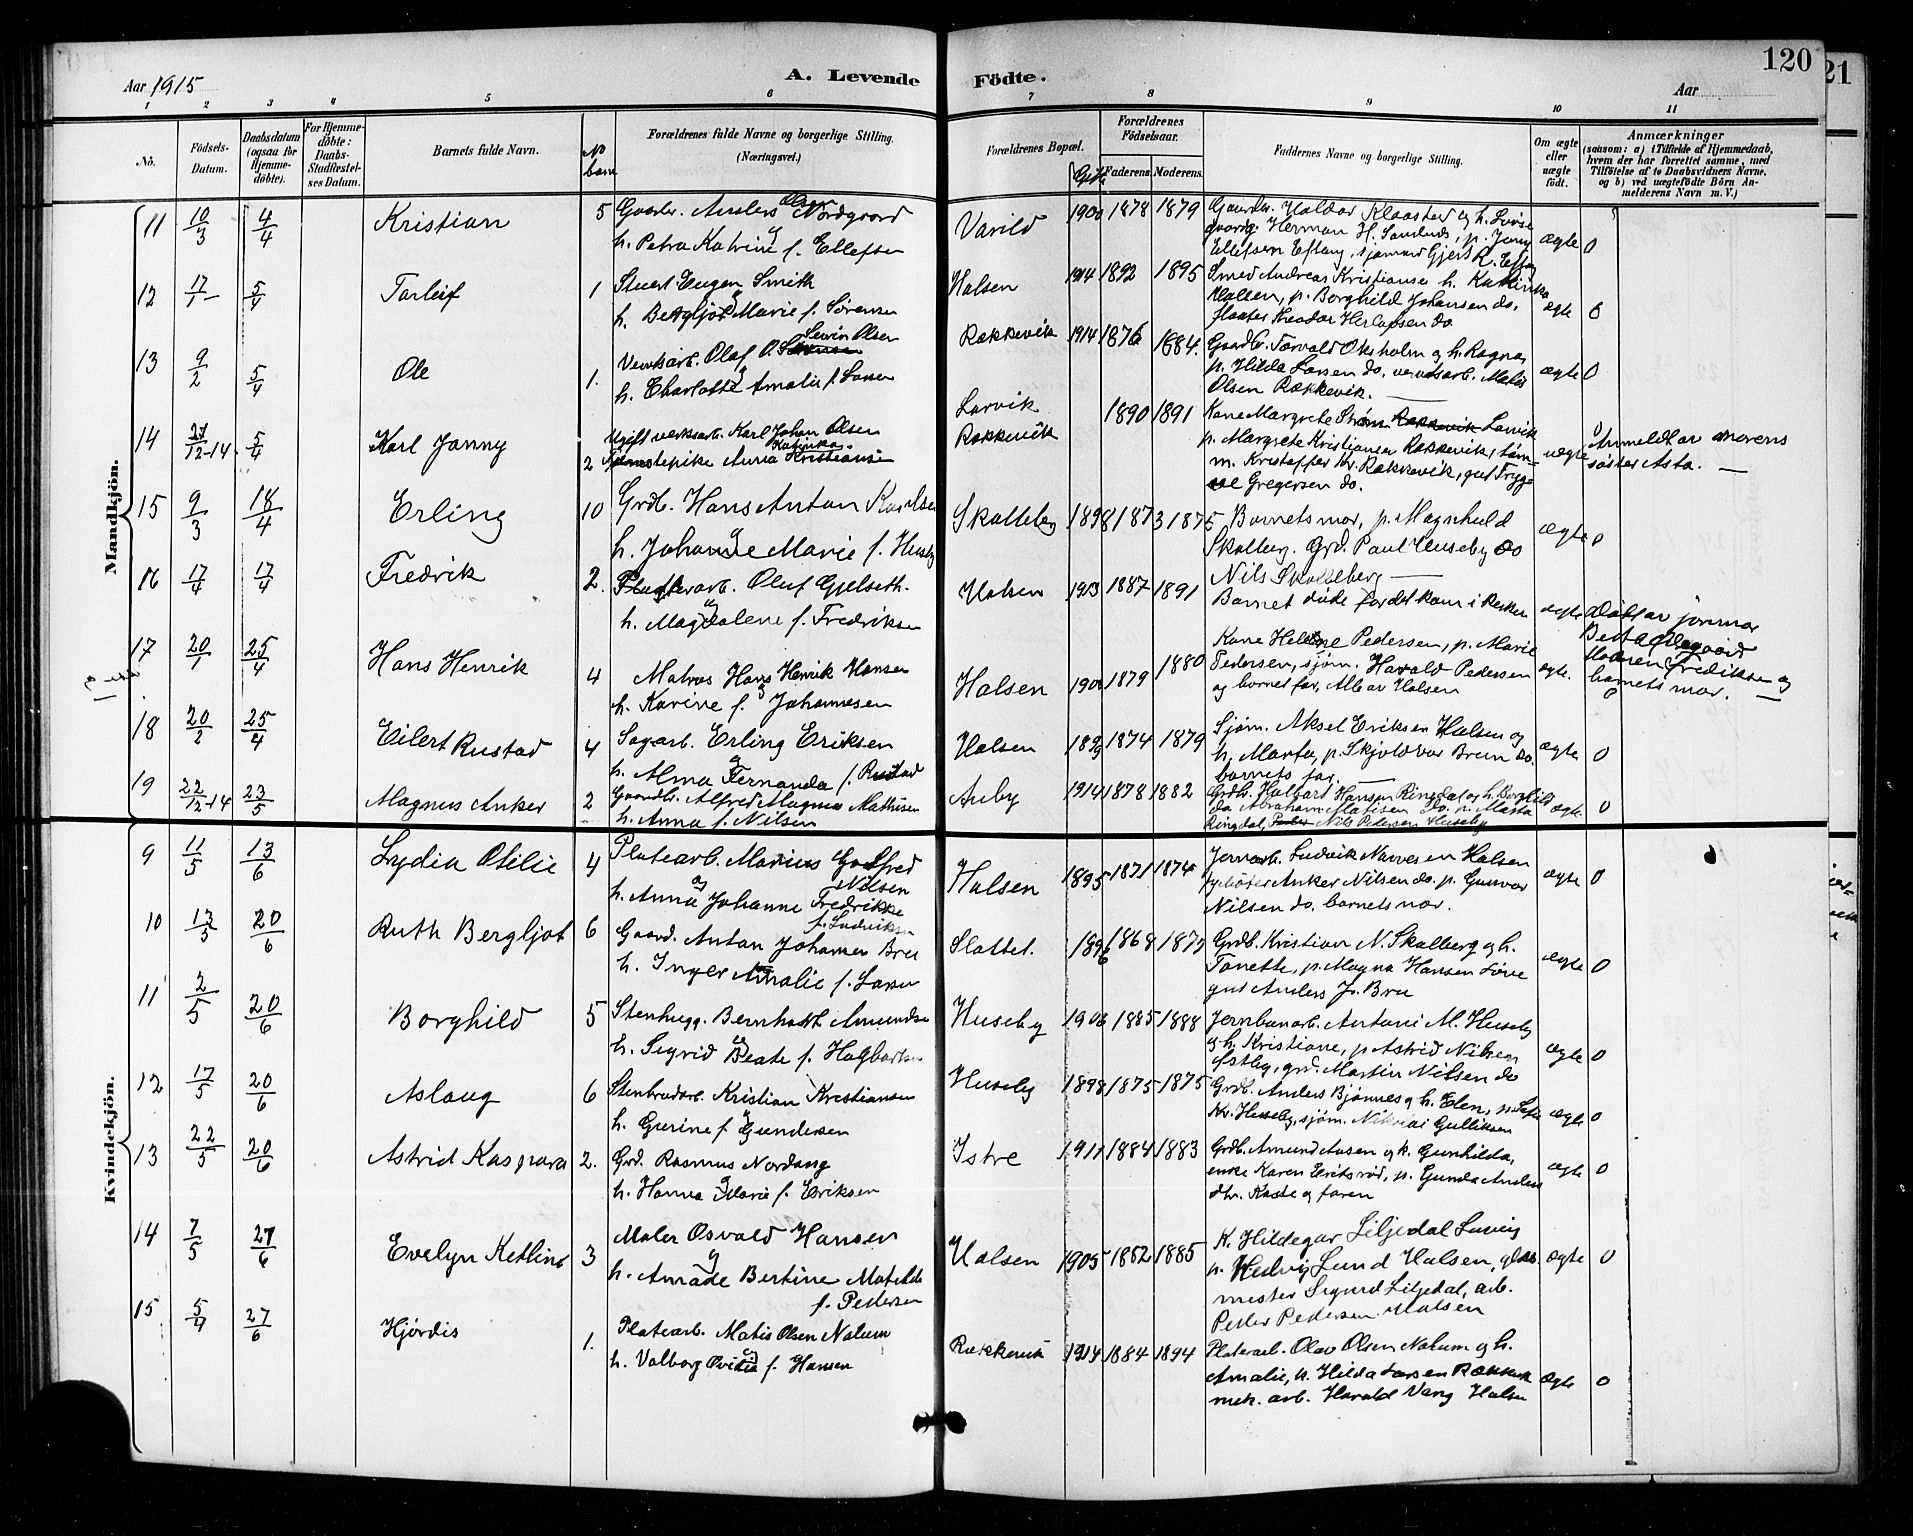 120
21
Aar 1915
A. Levende
Födte.
Aar
1 2 3 4 5 6 7 8 9 10 11
No.
Födsels-
Datum.
Daabsdatum
(ogsaa for
Hjemme-
döbte).
For Hjemme-
döbte:
Daabs-
Stadfæstel-
ses Datum.
Barnets fulde Navn.
No
barn
Forældrenes fulde Navne og borgerlige Stilling.
(Næringsvei.)
Forældrenes Bopæl.
Gifte
Forældrenes
Födselsaar.
Faderens. Moderens.
Faddernes Navne og borgerlige Stilling.
Om ægte
eller
uægte
födt.
Anmærkninger
(saasom: a) i Tilfælde af Hjemmedaab,
hvem der har forrettet samme, med
Tilföielse af to Daabsvidners Navne,
og b) ved uægtefödte Börn An-
melderens Navn m. V.)
Mandkjön.
11 10/3 4/4 Kristian 5 Gaardbr. Anders Olsen Nordgaard
h. Petra Katrine f. Ellefsen
Varild 1900 1878 1879 Gaardbr. Haldor Klaastad og h. Lovise
Herman H.
Ellefsen Eftang, sjømand Gjert R. Eftang
ægte 0
12 17/1 5/4 Torleif 1 Stuert Eugen Smith
h. Bergljot Marie f. Sørensen
Halsen 1914 1892 1895 Smed Andreas Kristiansen h. Kathinka
Halsen, p. Borghild Johansen do.
Theodor do
ægte 0
13 9/2 5/4 Ole 1. Verksarb. Olaf Olsen
h. Charlotte Amalie f. Larsen
Rækkevik 1914 1876 1884. Gaardb. Torvald Oksholm og h. Ragna,
p. Hilda Larsen do, verksarb. Matis
Olsen Rækkevik.
ægte 0
14 27/12-14 5/4 Karl Jonny 2 Ugift verksarb. Karl Johan Olsen
Tjenestepike Anna Katinka Kristiansen
Larvik
Rækkevik 1890 1891 Kone Margrete Strøm Larvik
p. Margrete Kristiansen Rækkevik, tøm-
m. Kristoffer Kr. Rækkevik, gut Tryg-
ve Gregersen do.
uægte Anmeldt av morens
søster Asta.
15 9/3 18/4 Erling 10 Grdb. Hans Anton Karlsen
h. Johanne Marie f. Huseby
Skalleberg 1898 1873 1875 Barnets mor, p. Magnhild
Skalleberg. Grd. Paul Huseby do
Nils Skalleberg
ægte 0
16 17/4 17/4 Fredrik 2. Oluf Gjelseth.
h. Magdalene f. Fredriksen
Halsen 1913 1887 1891 Barnet døde før det kom i kirken
ægte Døbt av jormor
Halsen Fredriksen og
barnets mor.
17 20/1 25/4 Hans Henrik 4 Matros Hans Henrik Hansen
h. Karine f. Johannesen
Halsen 1900 1879 1880 Kone Helene Pedersen, p. Marie
Pedersen, sjøm. Harald Pedersen
og barnets far, Alle av Halsen
ægte. 0
18 20/2 25/4 Eilert Rustad 4 Sagarb. Erling Eriksen
h. Alma Fernanda f. Rustad
Halsen 1899 1874 1879 Sjøm. Aksel Eriksen Halsen og
h. Marta, p. Skjoldvor Brun do.
barnets far.
ægte 0
19 22/12-14 23/5 Magnus Anker 2 Gaardbr. Alfred Magnus Mathisen
h. Anna f. Nilsen
Auby 1914 1878 1882 Grdb. Halbart Hansen Ringdal og h. Borghild
do Abraham Matisen do. p. Marta
Ringdal, Nils Pedersen Huseby
ægte 0
Kvindekjön.
9 11/5 13/6 Lydia Otilie 4 Platearb. Marius Gotfred
Nilsen
h. Anna Johanne Fredrikke
f. Ludviksen
Halsen 1895 1871 1874 Jernarb. Ludvik Narvesen Halsen
Anker Nilsen do. p. Gunvor
Nilsen do. barnets mor.
ægte 0
10 13/5 20/6 Ruth Bergljot 6 Gaard. Anton Johansen Bru
h. Inger Amalie f. Larsen
Slottet. 1896 1868 Grdb. Kristian N. Skalberg og h.
Tonette, p. Magna Hansen Løve
gut Anders J. Bru
ægte 0
11 2/5 20/6 Borghild 5 Stenhugg. Bernhardt Amundsen
h. Sigrid Beate f. Hagbartsen
Huseby 1906 1885 1888 Jernbanarb. Antoni M. Huseby
og h. Kristiane, p. Astrid Nilsen
Østby, grd. Martin Nilsen do
ægte 0
12 17/5 20/6 Aslaug 6 Stenbrudarb. Kristian Kristiansen
h. Gurine f. Gundersen
Huseby 1898 1875 1875 Grdb. Anders Bjønnes og h. Elen,
Kr. Huseby, sjøm. Nikolai Gulliksen
ægte 0
13 22/5 20/6 Astrid Kaspara 2. Grd. Rasmus Nordang
h. Hanna Marie f. Eriksen
Istre 1911 1884 1883 Grdb. Amund Aasen og h. Gunhilda,
enke Karen Eritsrød, p. Gunda Anders
dtr. Kaste og faren
ægte 0
14 7/5 27/6 Evelyn Ketline 3 Maler Osvald Hansen
h. Amade Bertine Matilde
f. Pedersen
Halsen 1905 1882 1885 K. Hildegar Liljedal Larvig
p. Hedvig Lund Halsen, glas-
mester Sigurd Liljedal, arb.
Peder Pedersen Halsen
ægte 0
15 5/4 27/6 Hjørdis 1. Platearb. Matis Olsen Nalum
h. Valborg Ovidia f. Hansen
Rækkevik 1914 1884 1894 Platearb. Olav Olsen Nalum og h.
Amalie, p. Hilda Larsen Rækkevik
mek. arb. Harald Vang Halsen
ægte 0